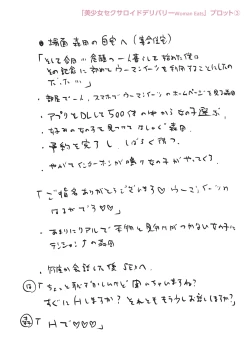 「美少女セクサロイドデリバリーWoman Eats」プロット③
● 場面 森田の自宅へ (集合住宅)
「そして今日… 念願の一人暮しを始めた僕は
その記念に初めてウーマンイーツを利用することにしたの
だった…」
・部屋で一人、スマホでウーマンイーツのホームページを見る森田
・アプリをDLして500体の中から女の子選ぶ、
・好みの女の子を見つけてはしゃぐ森田
・予約を完了し しばらく待つ、
・やがてインターホンが鳴り女の子がやってくる、
「ご指名ありがとうございます♡ ウーマンイーツの
はるかです♡♡」
・あまりにリアルで本物と見分けがつかない女の子に
テンション↑の森田
・何度か会話した後SEXへ、
「ちょっと恥ずかしいけど
すぐにHしますか? それとももう少しお話しますか?」
「Hで♡♡♡」